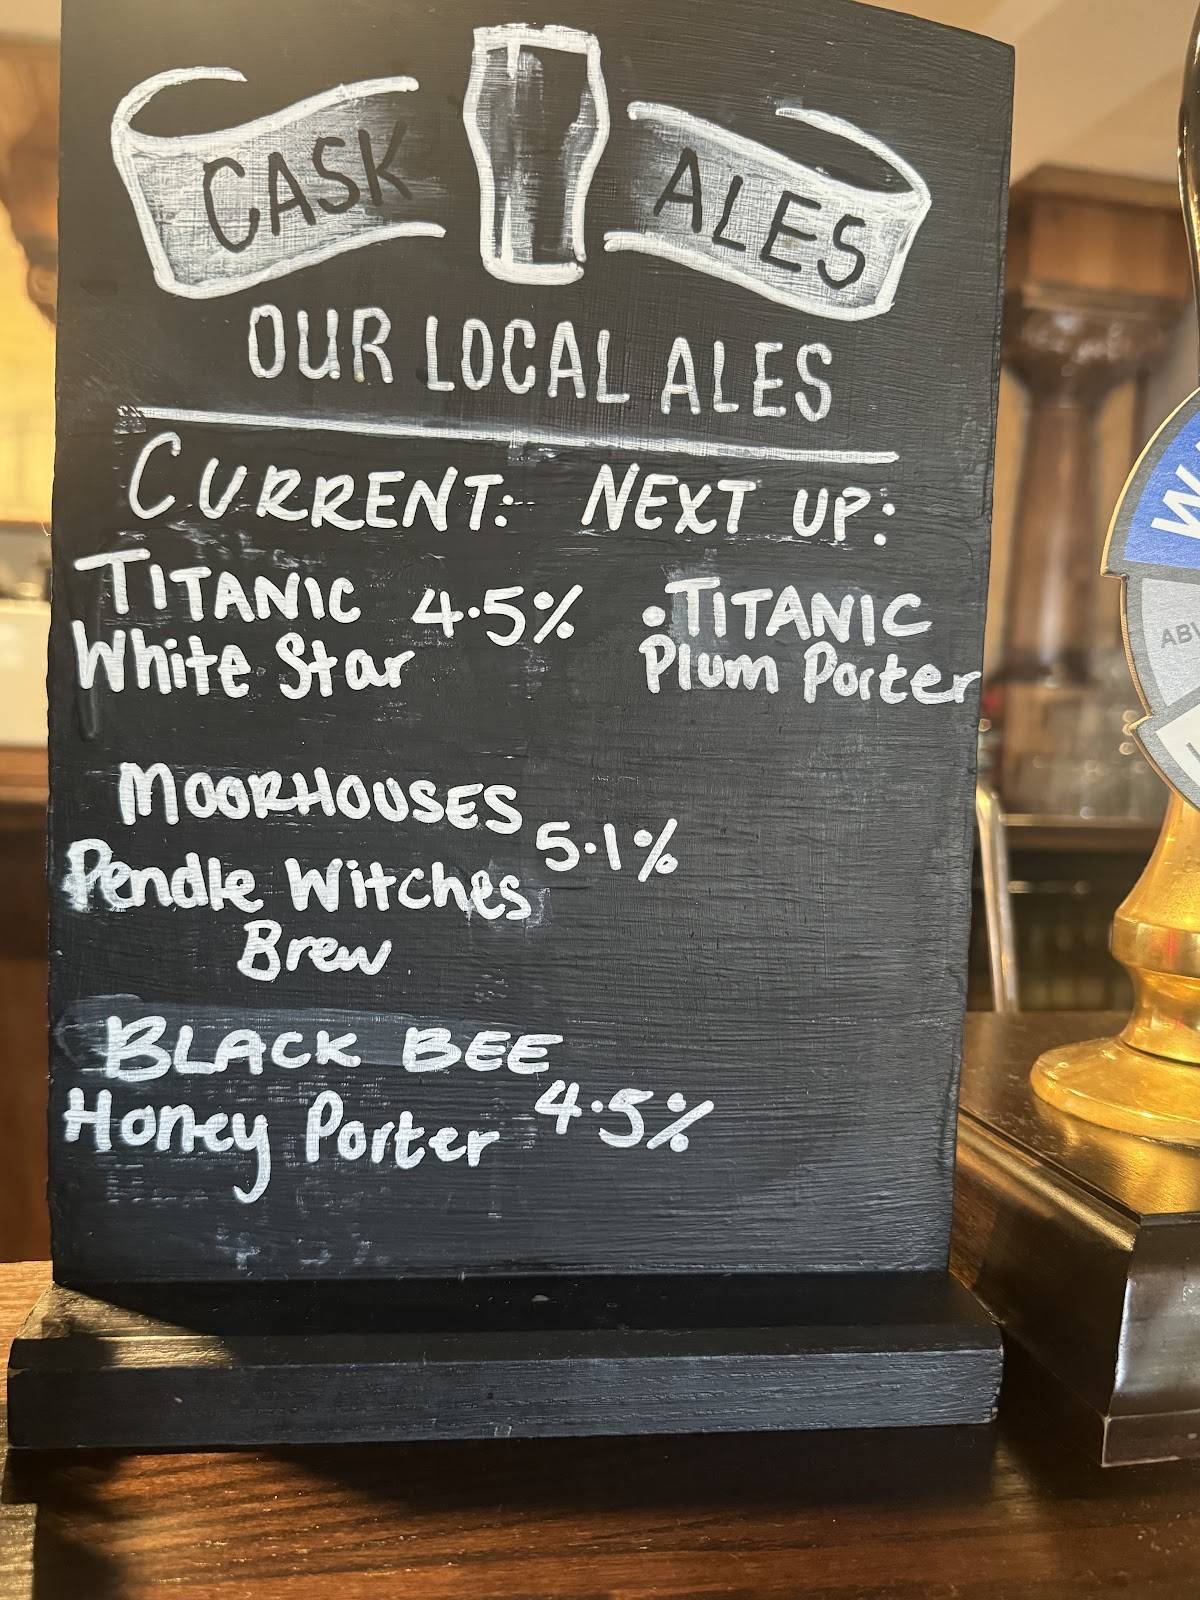 CASK ALES
OUR LOCAL ALES
CURRENT:
TITANIC 4.5%
White Star
MOORHOUSES
5.1%
Pendle Witches
Brew
BLACK BEE
Honey Porter 4.5%
NEXT UP:
• TITANIC
Plum Porter